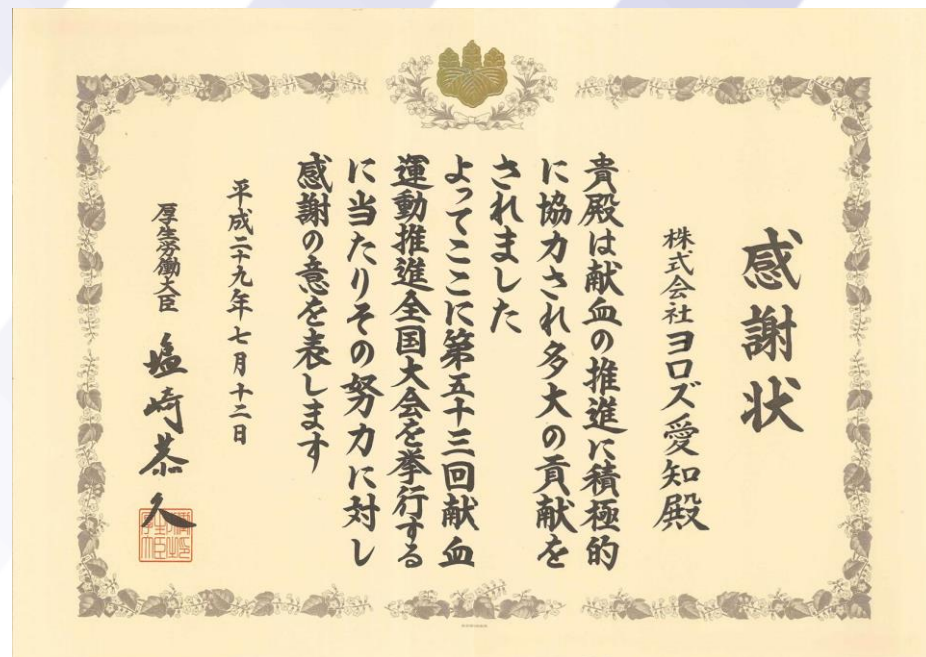 感謝状
株式会社ヨロズ愛知殿
貴殿は献血の推進に積極的
に協力され多大の貢献を
されました
よってここに第五十三回献血
運動推進全国大会を挙行する
に当たりその努力に対し
感謝の意を表します
平成二十九年七月十二日
厚生労働大臣 塩崎恭久